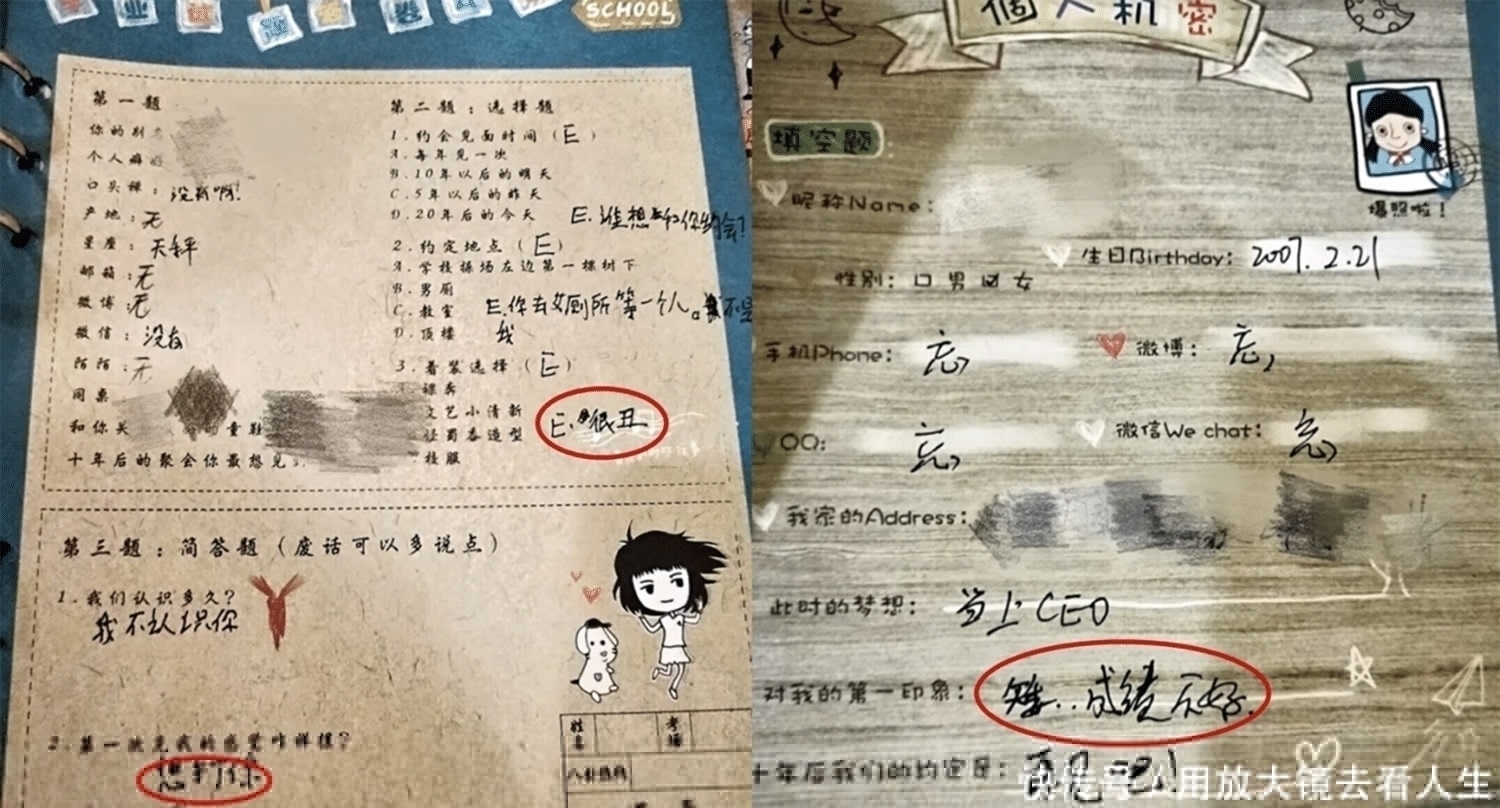 业
SCHOOL
第一题
你的别
个人癖
口头禅：没我啊!
产地：无
星座：天秤
邮箱：无
微博：无
微信：没有
陌陌：无
同桌
和你关
童鞋
十年后的聚会你最想见
第二题：选择题
1.约会见面时间（E）
A.每年见一次
B.10年以后的明天
C.5年以后的昨天
D.20年后的今天
E.谁想和你约会!
2.约定地点（E）
A.学校操场左边第一棵树下
B.男厕
C.教室
D.顶楼
E.你去女厕所等一个人。不是
我
3.着装选择（E）
课桌
文艺小清新
怪蜀黍造型
校服
E.很丑
第三题：简答题（废话可以多说点）
1.我们认识多久？
我不认识你
2.第一次见我的感觉咋样模？
想打你
姓名
考场
個人机密
填空题
爆照啦！
昵称Name：
性别：口男 女
生日Birthday：2007.2.21
手机Phone：忘,
微博：忘,
QQ：忘,
微信We chat：忘,
我家的Address：
此时的梦想：当上CEO
对我的第一印象：矮..成绩不好.
十年后我们的约定是：
快传号/用放大镜去看人生